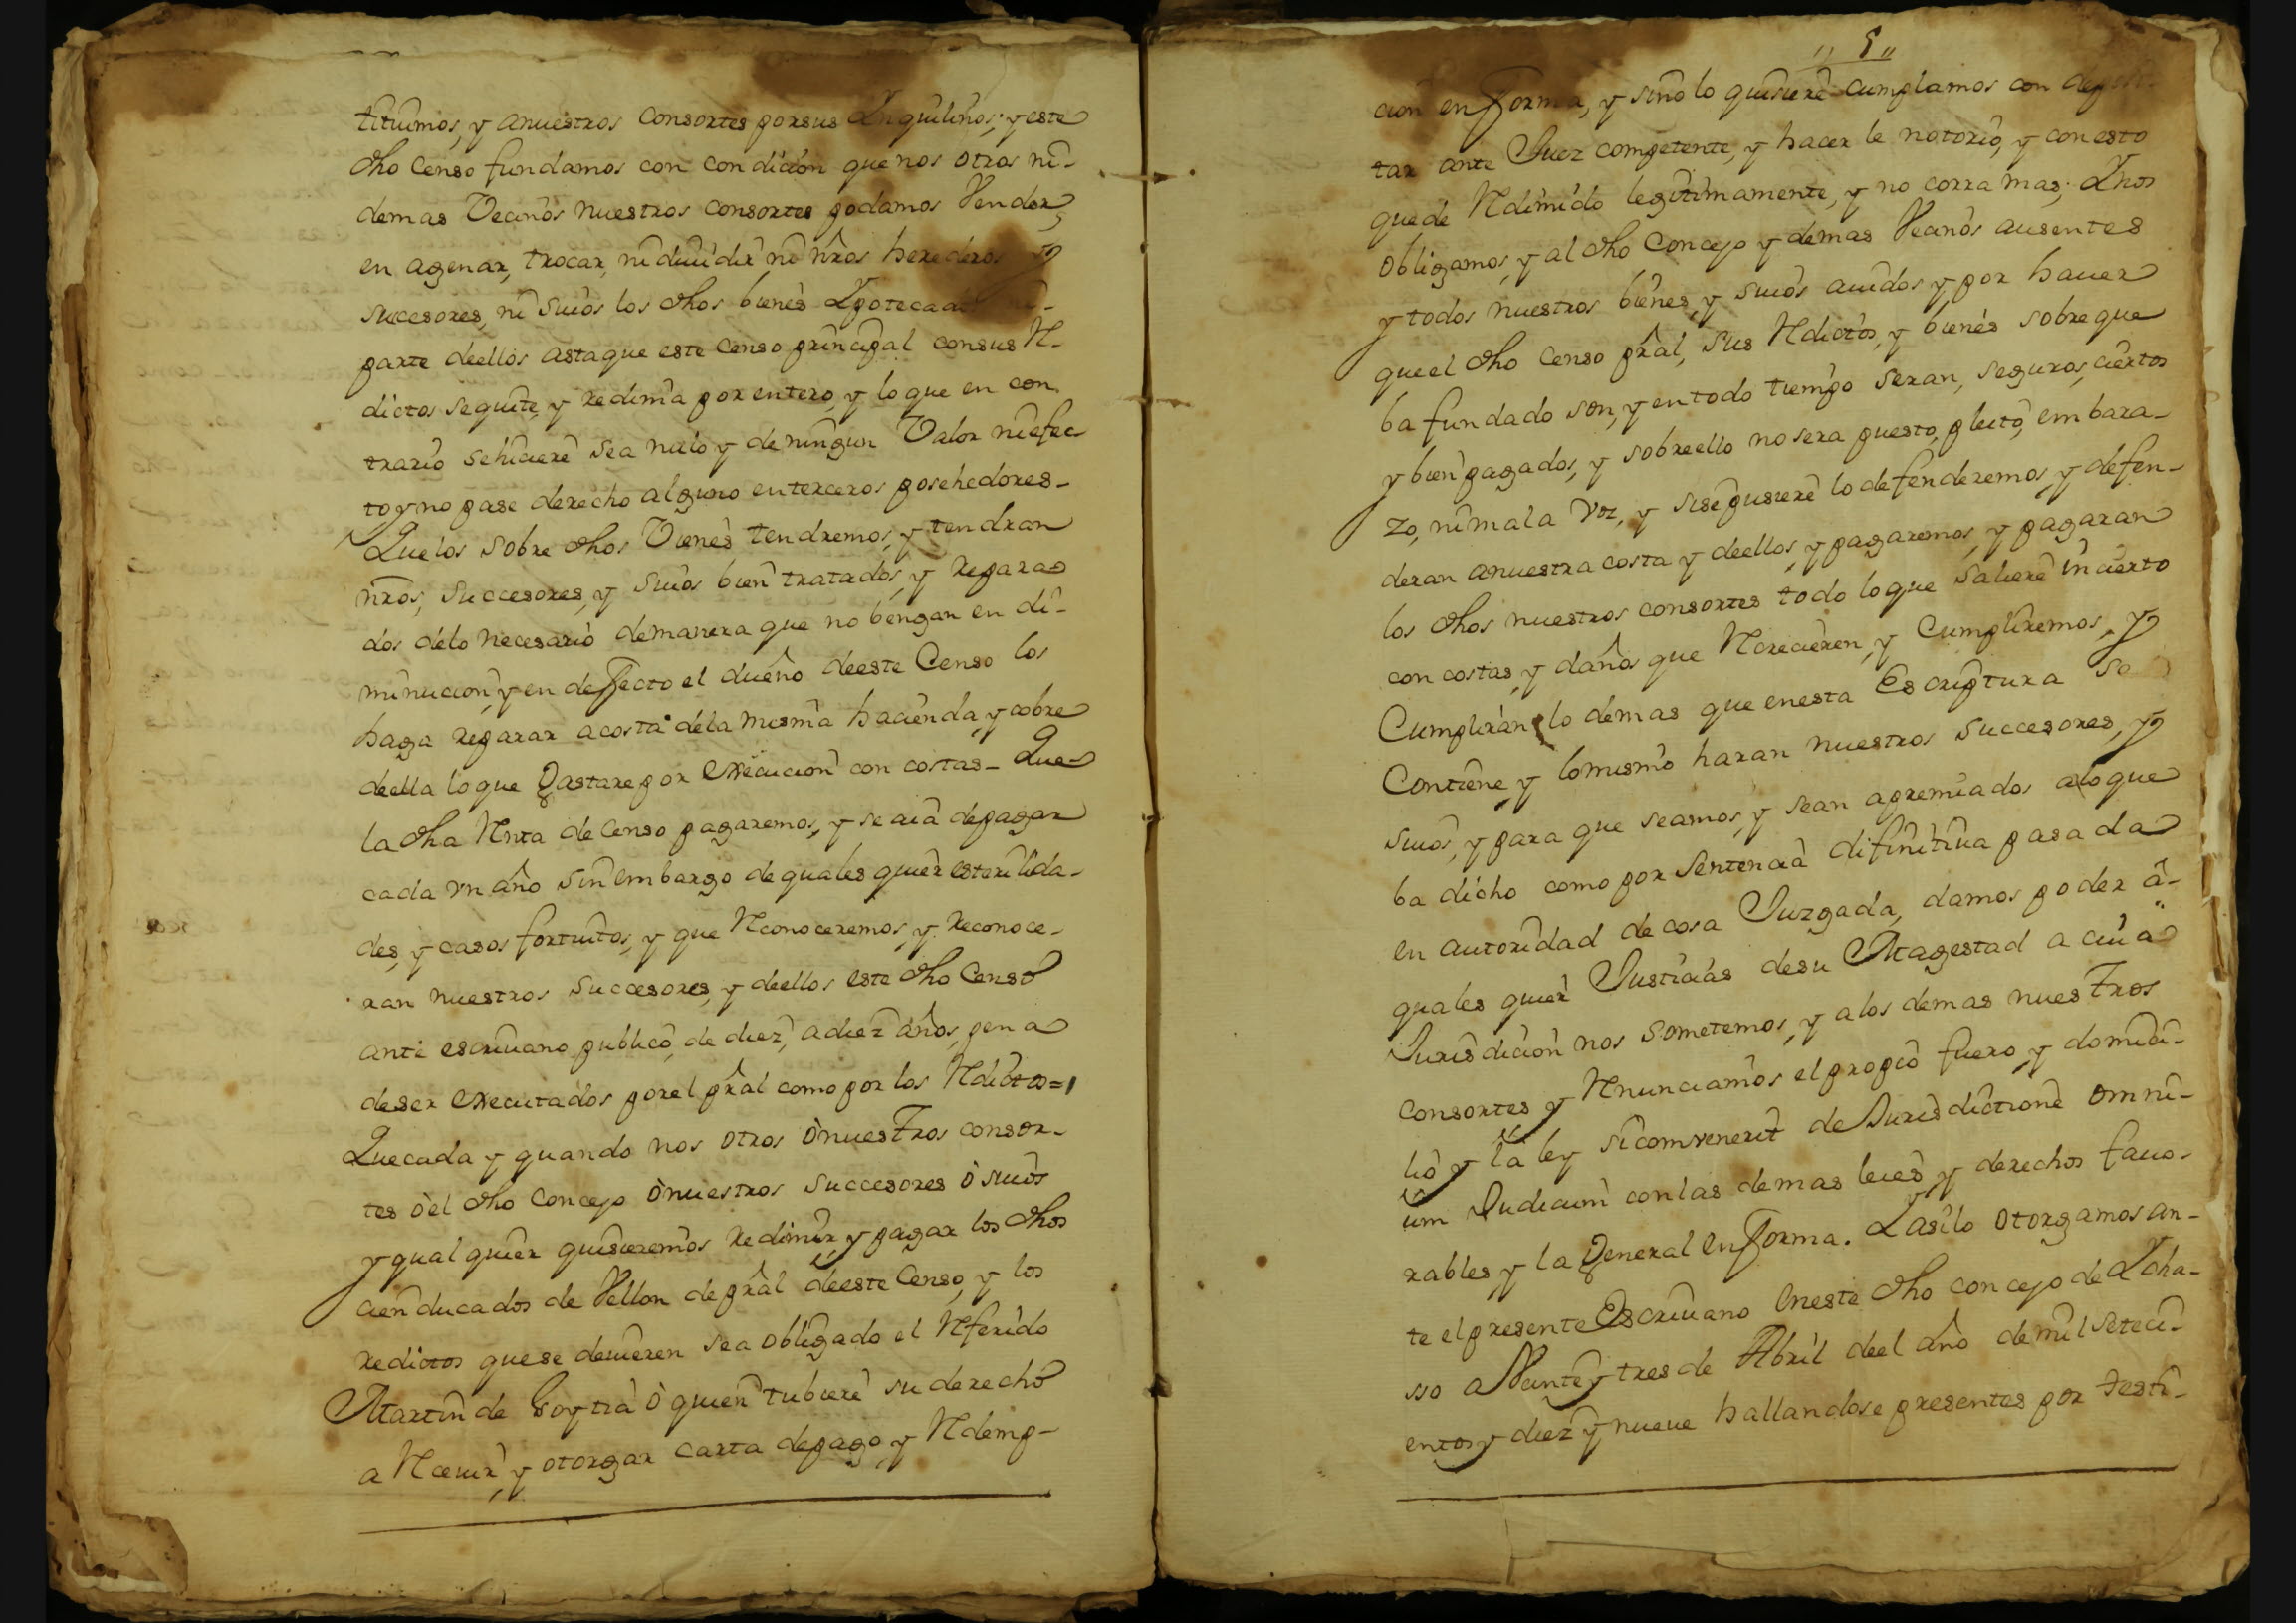 tituimos, y anuestros consortes porsus Ynquilinos; y este
dho Censo fundamos con condicion que nos otros ni-
demas Vecinos nuestros consortes podamos Vender,
en agenar, trocar, ni diuidir ni nros herederos y
sucesores, ni suios los dhos bienes Ypotecad
parte deellos astaque este Censo principal consus R-
dictos sequite, y redima por entero, y lo que en con
trario sehiciere sea nulo y de ningun Valor ni efec-
to y no pase derecho alguno enterceros posehedores-
Quelos sobre dhos Vienes tendremos, y tendran
nros, succesores, y suios bien tratados, y repara-
dos delo necesario demanera que no bengan en di-
minucion, y en defecto el dueño deeste Censo los
haga reparar acosta dela misma hacienda, y cobre
deella lo que gastare por execucion con costas- Que
la dha Renta de Censo pagaremos, y se aia depagar
cada vn año sin embargo de quales quier esterilida-
des, y casos fortuitos, y que Reconoceremos, y reconoce-
ran nuestros succesores, y deellos este dho Censo
ante escriuano publico, de diez, adiez años, pena
deser executados porel pral como por los Redictos=
Quecada y quando nos otros ò nuestros consor-
tes òel dho Concejo ò nuestros succesores ò suios
y qual quier quisieremos redimir, y pagar los dhos
cien ducados de Vellon de pral deeste Censo, y los
redictos quese deuieren sea obligado el Referido
Martin de Goytia ò quien tubiere su derecho
a Receuir, y otorgar carta depago, y Redemp-
,, 5 ,,
cion en forma, y sino lo quisiere cumplamos con deposi
tar ante Juez competente, y hacer le notorio, y con esto
quede Redimido legitimamente, y no corra mas; Ynos
obligamos, y al dho Concejo y demas Vecinos ausentes
y todos nuestros bienes, y suios auidos y por hauer
queel dho Censo pral, sus Redictos, y bienes sobreque
ba fundado son, y entodo tiempo seran, seguros, ciertos
y bien pagados, y sobreello no sera puesto, pleito, embara-
zo, ni mala voz, y sisepusiere lo defenderemos, y defen-
deran anuestra costa y deellos, y pagaremos, y pagaran
los dhos nuestros consortes todo loque saliere incierto
con costas, y daños que Recrecieren, y Cumpliremos, y
Cumpliran lo demas que enesta Escriptura se
Contiene, y lomismo haran nuestros succesores, y
suios, y para que seamos, y sean apremiados aloque
ba dicho como por Sentencia difinitiua pasada
en autoridad de cosa Juzgada, damos poder â-
quales quier Justicias desu Magestad a cuia
Jurisdicion nos sometemos, y alos demas nuestros
consortes y Renunciamos el propio fuero, y domici-
lio y la ley sicomvenerit de Jurisdictione omni-
um Judicum conlas demas leies, y derechos fauo-
rables, y la General en forma. Yasilo otorgamos an-
te elpresente Escriuano eneste dho concejo de Ycha-
sso a Veinte y tres de Abril deel año de mil seteci-
entos y diez y nueue hallandose presentes por testi-